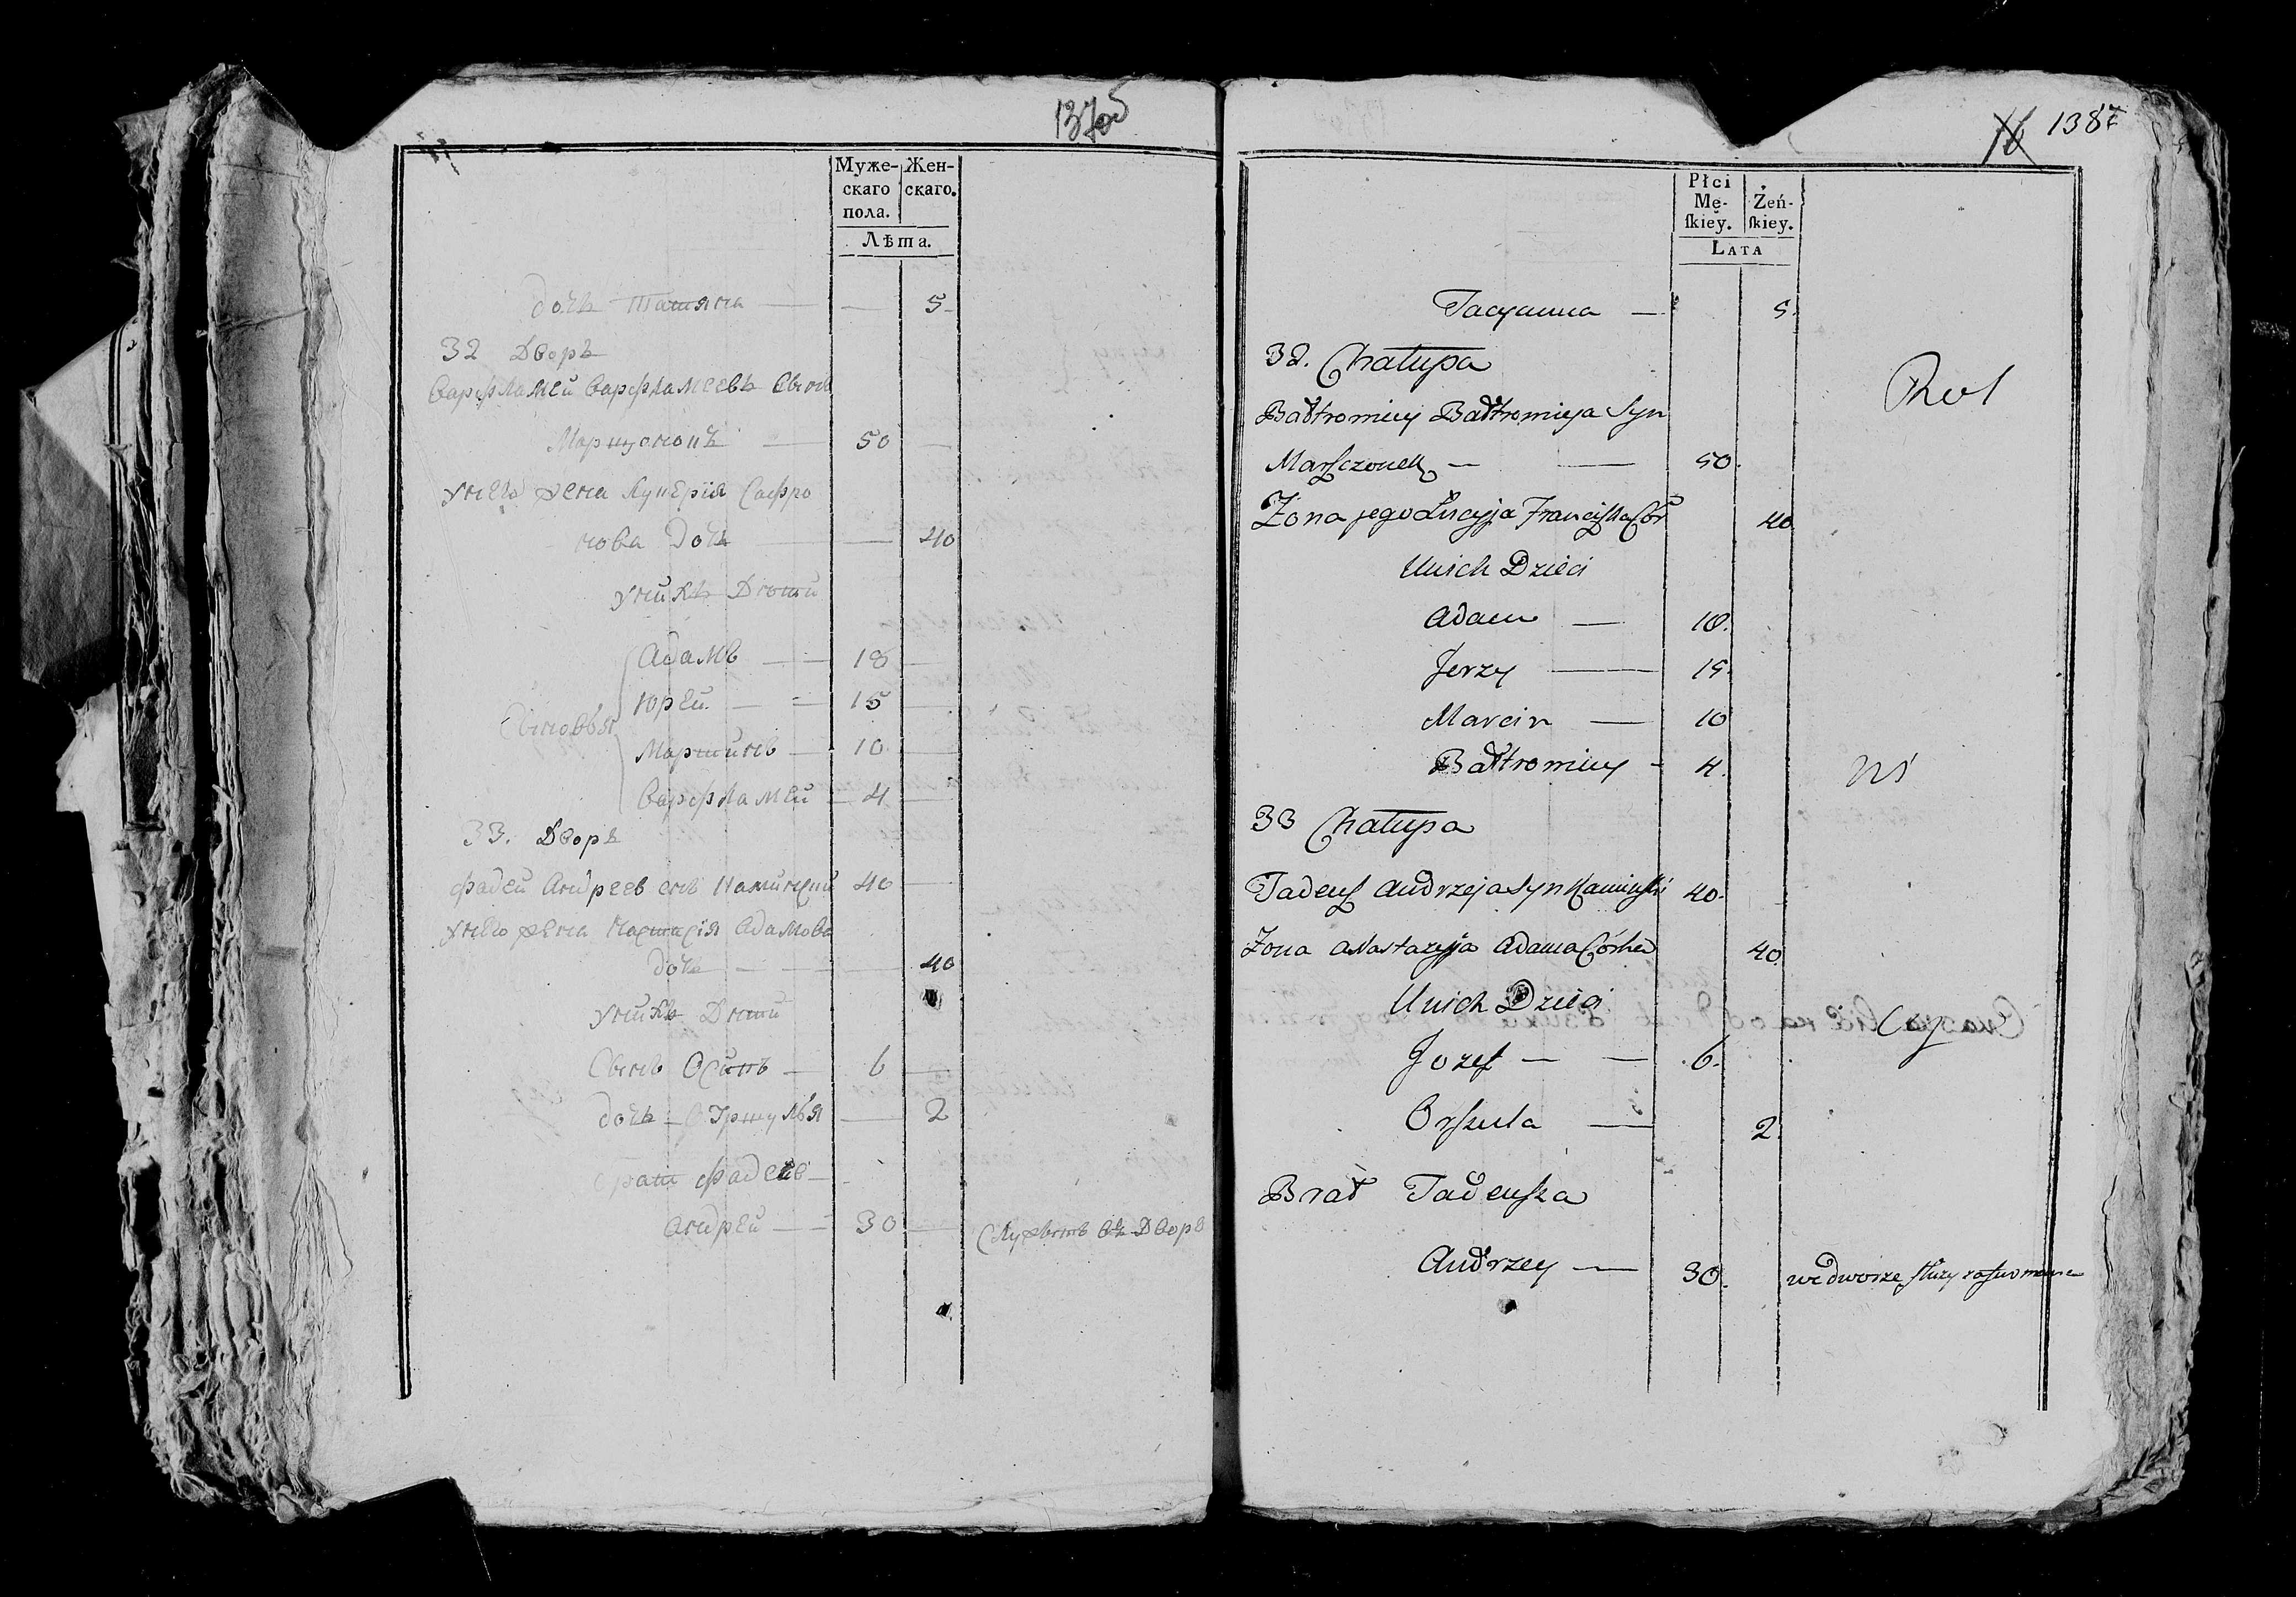 137об
Муже-
скаго
пола.
Жен-
скаго.
Лѣта.
дочь Татяна — — 5
32 Дворъ
Варфламей Варфламеевъ Сынъ
50
унего жена Луцерія
нова дочь — — 40
унихъ Дѣти
Адамъ — 18
Юрей — 15
Сыновья
Мартинъ — 10
Варфламей — 4
33. Дворъ
Фадей Андреевъ 40
унего жена Адамова
дочь — — 40
унихъ Дѣти
Сынъ Осипъ — 6
дочь — 2
братъ Фадеевъ —
Андрей — 30 — въ Дворѣ
138
Płci
Mę-
ſkiey.
Żeń-
ſkiey.
LATA
Tacyanna — 5.
32. Chałupa
Bałtromiey Bałtromieja Syn
Marſzczonek — — 50.
Żona jego Łucyja Franciſzka Cór 40
Unich Dzieci
Adam — 18.
Jerzy — 15.
Marcin — 10
Bałtromiey - 4.
33 Chałupa
Tadeuſz Andrzeja Syn Kamińſki 40.
Żona Anastazyja Adama Córka 40.
Unich Dzieci
Jozef — — 6.
Orſzula — 2.
Brat Tadeuſza
Andrzey — 30. we dworze ſłuży